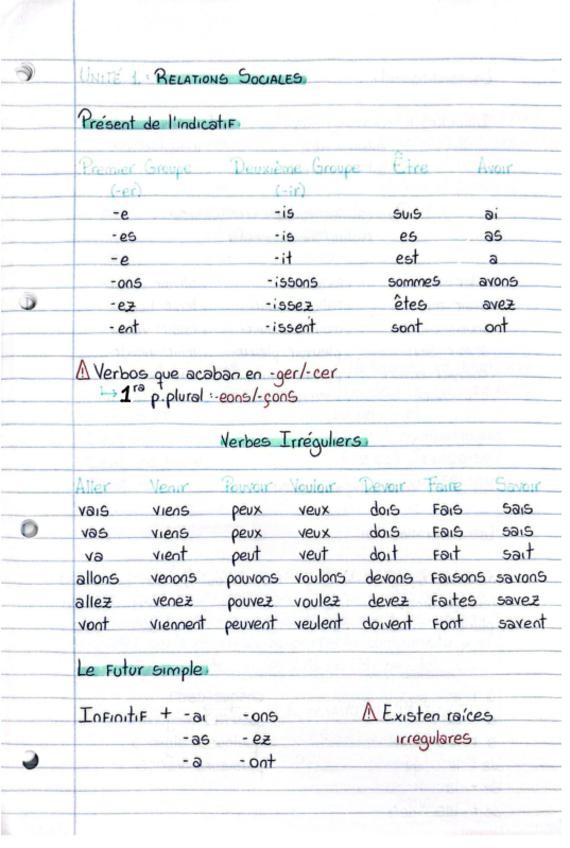 UNITÉ 1: RELATIONS SOCIALES
Présent de l'indicatif
Premier Groupe Deuxième Groupe Être Avoir
(-er) (-ir)
-e -is suis ai
-es -is es as
-e -it est a
-ons -issons sommes avons
-ez -issez êtes avez
-ent -issent sont ont
⚠ Verbos que acaban en -ger/-cer
↳ 1ra p.plural :-eons/-çons
Verbes Irréguliers
Aller Venir Pouvoir Vouloir Devoir Faire Savoir
vais viens peux veux dois fais sais
vas viens peux veux dois fais sais
va vient peut veut doit fait sait
allons venons pouvons voulons devons faisons savons
allez venez pouvez voulez devez faites savez
vont viennent peuvent veulent doivent font savent
Le Futur simple
Infinitif + -ai -ons ⚠ Existen raíces
-as -ez irregulares
-a -ont